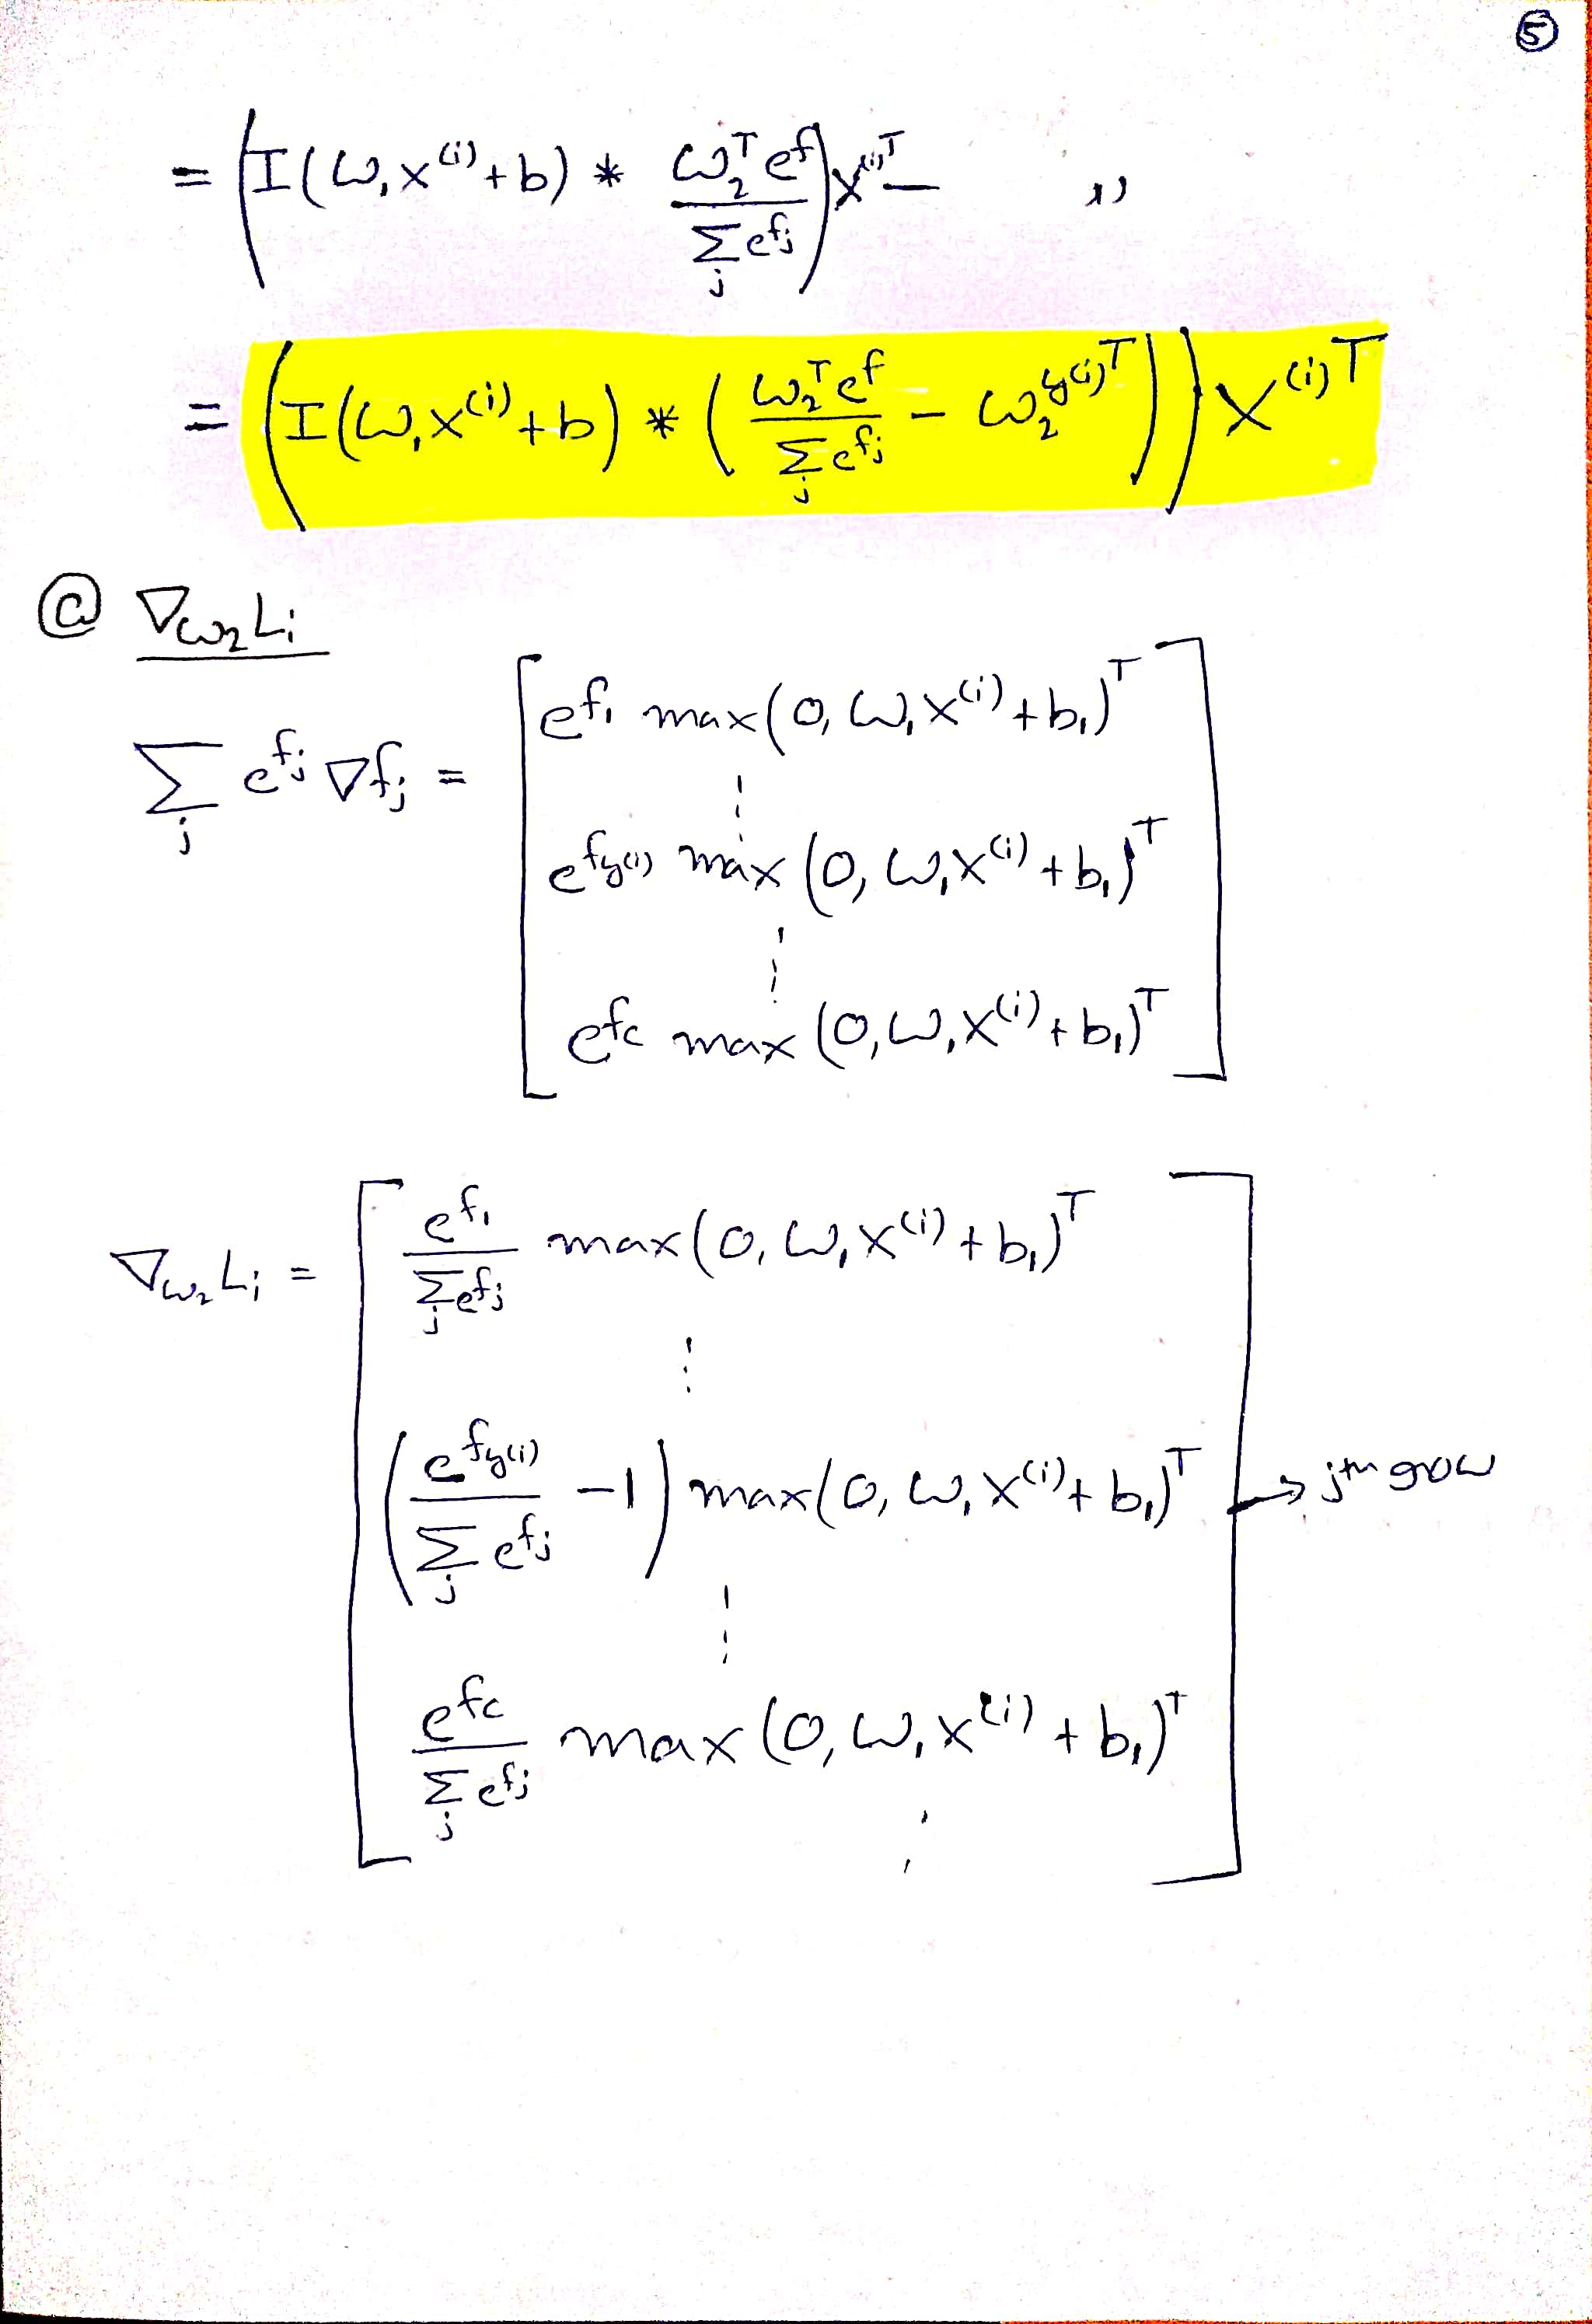 ⑤
= (I(ω₁x⁽ⁱ⁾+b) * ω₂ᵀeᶠ / Σⱼ e^{fⱼ}) x⁽ⁱ⁾ᵀ − ,,
= (I(ω₁x⁽ⁱ⁾+b) * (ω₂ᵀeᶠ / Σⱼ e^{fⱼ} − ω₂^{y⁽ⁱ⁾ᵀ})) x⁽ⁱ⁾ᵀ
@ ∇_{ω₂}Lᵢ
Σⱼ e^{fⱼ} ∇fⱼ = [ e^{f₁} max(0, ω₁x⁽ⁱ⁾+b₁)ᵀ
⋮
e^{f_{y⁽ⁱ⁾}} max(0, ω₁x⁽ⁱ⁾+b₁)ᵀ
⋮
e^{f_c} max(0, ω₁x⁽ⁱ⁾+b₁)ᵀ ]
∇_{ω₂}Lᵢ = [ e^{f₁} / Σⱼ e^{fⱼ} max(0, ω₁x⁽ⁱ⁾+b₁)ᵀ
⋮
(e^{f_{y⁽ⁱ⁾}} / Σⱼ e^{fⱼ} −1) max(0, ω₁x⁽ⁱ⁾+b₁)ᵀ → jᵗʰ row
⋮
e^{f_c} / Σⱼ e^{fⱼ} max(0, ω₁x⁽ⁱ⁾+b₁)ᵀ
⋮ ]